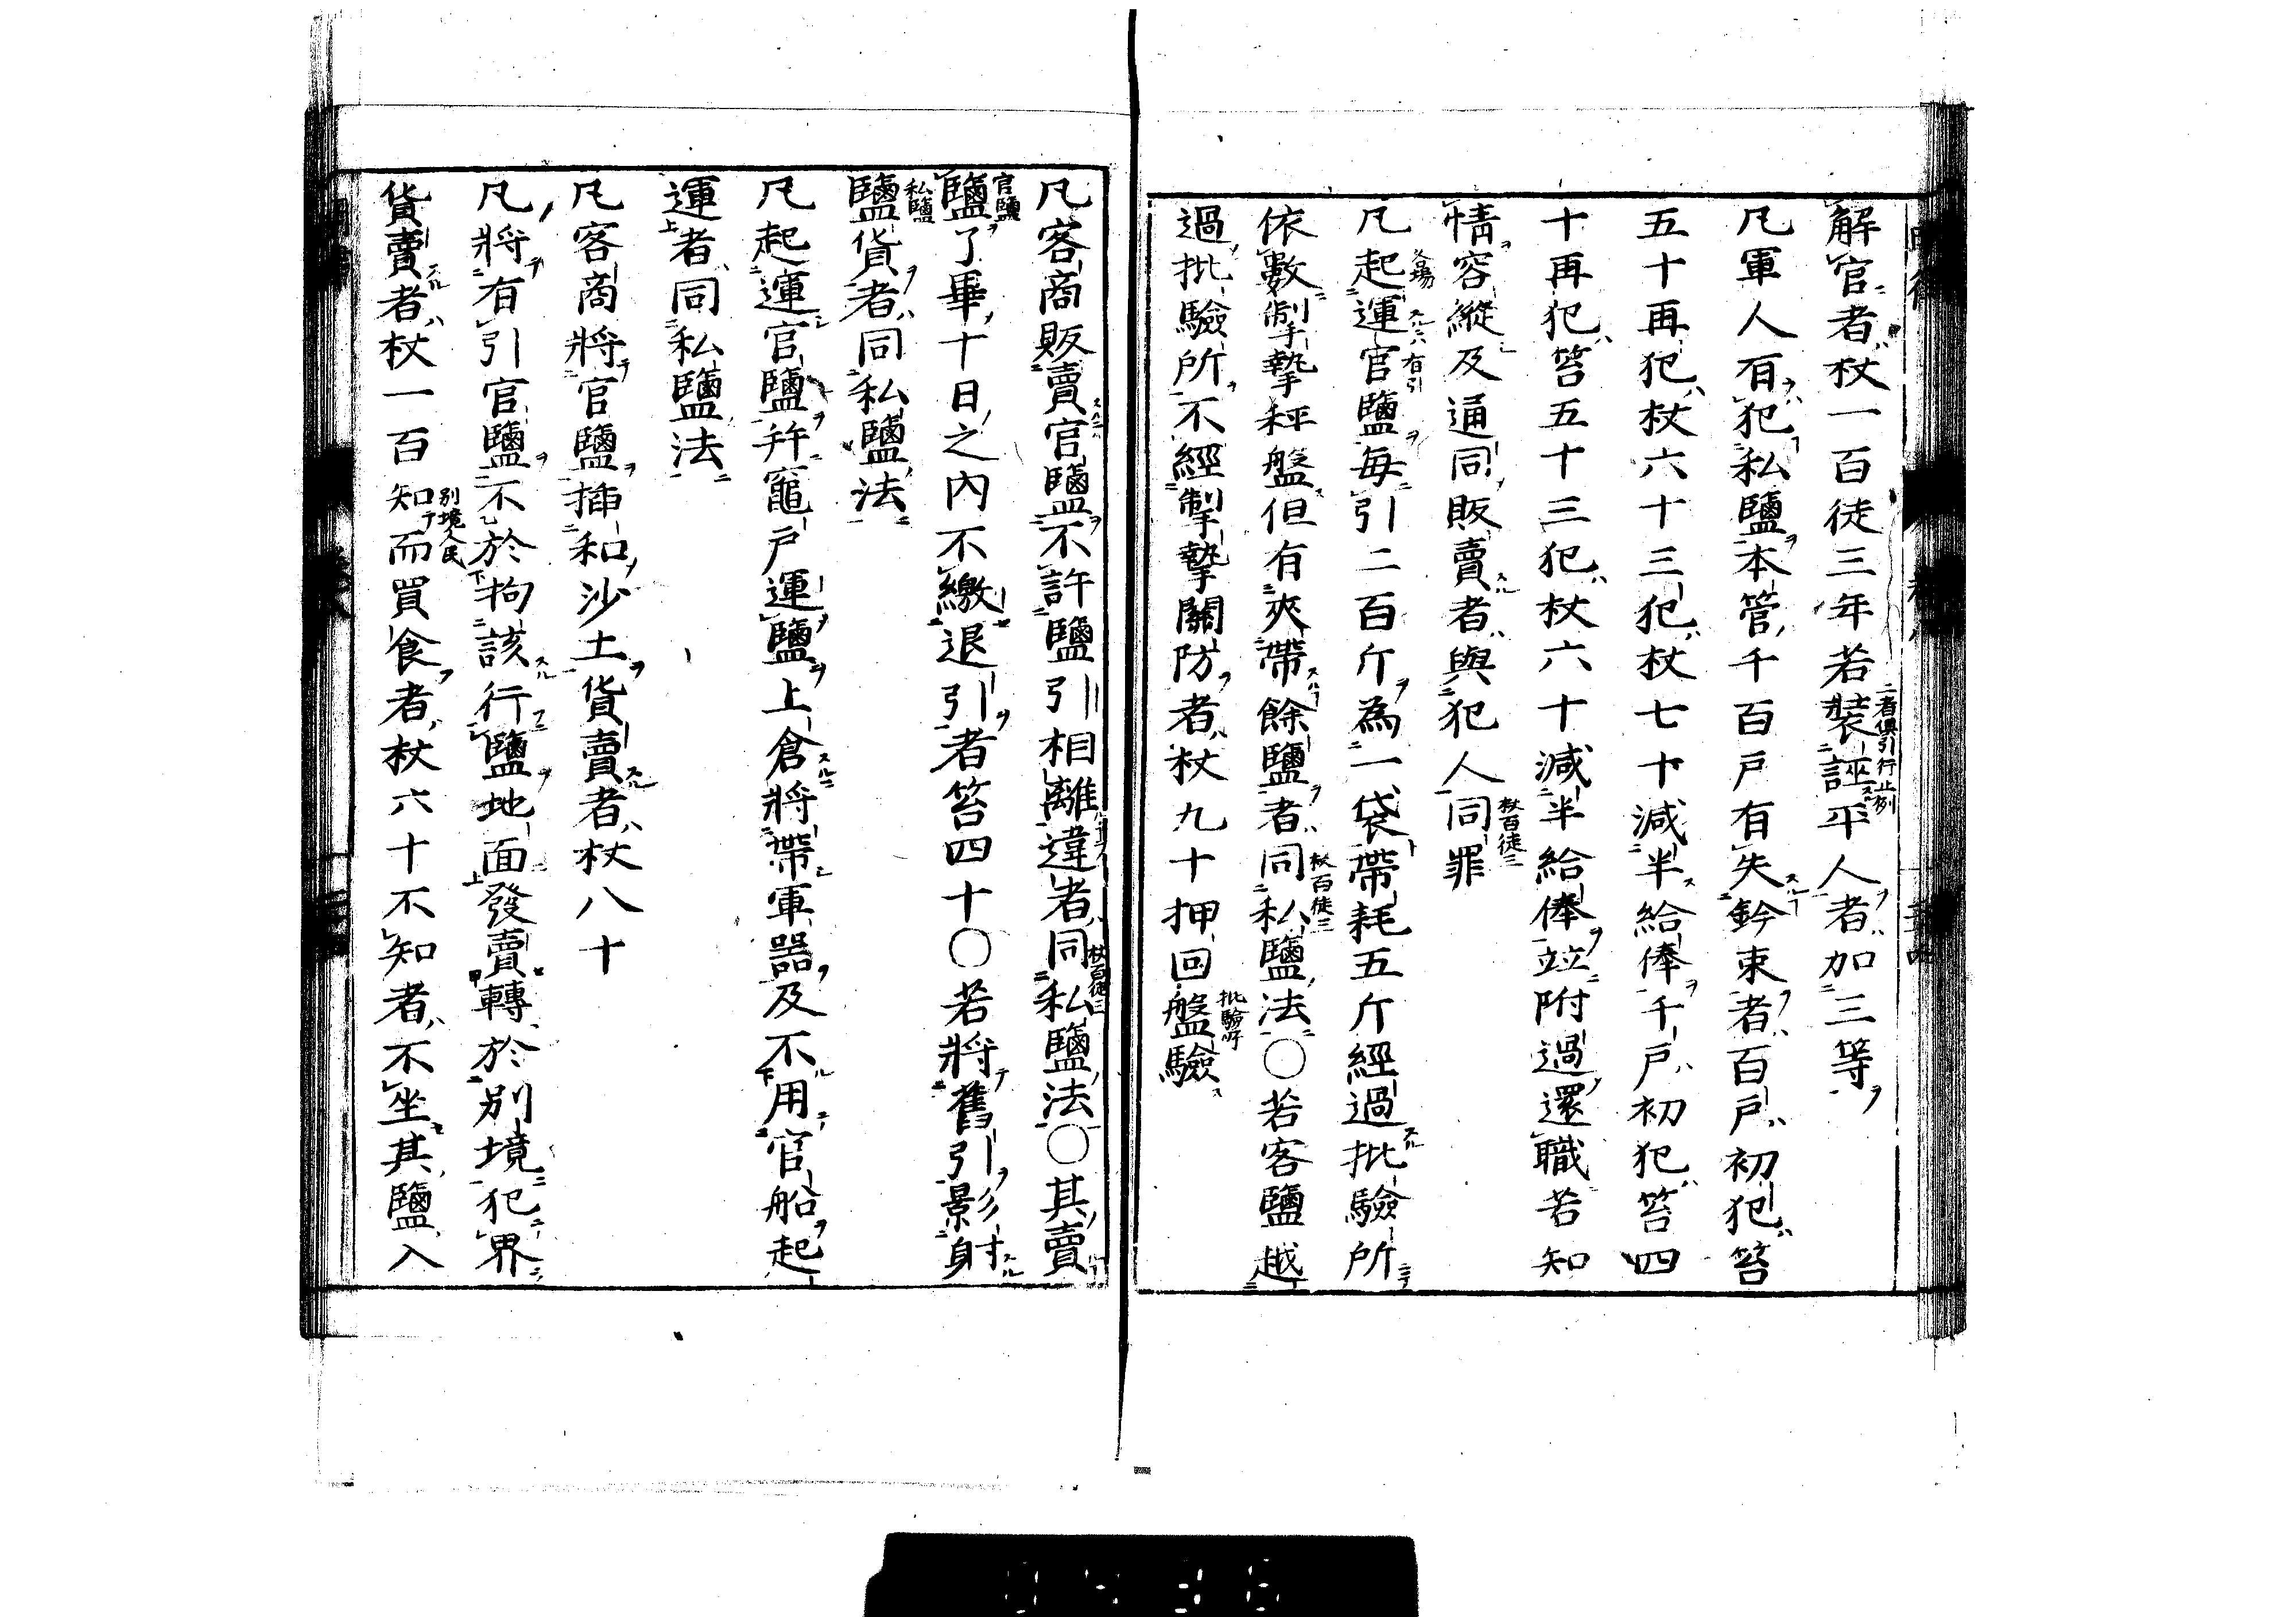 解官者杖一百徒三年若裝誣平人者加三等
二者俱引行止例
凡軍人有犯私鹽本管千百戶有失鈐束者百戶初犯笞
五十再犯杖六十三犯杖七十減半給俸千戶初犯笞四
十再犯笞五十三犯杖六十減半給俸竝附過還職若知
情容縱及通同販賣者與犯人同罪
杖百徒三
凡起運官鹽每引二百斤為一袋帶耗五斤經過批驗所
有引
依數掣摯秤盤但有夾帶餘鹽者同私鹽法〇若客鹽越
杖百徒三
過批驗所不經掣摯關防者杖九十押回盤驗
批驗所
凡客商販賣官鹽不許鹽引相離違者同私鹽法〇其賣
杖百徒三
鹽了畢十日之內不繳退引者笞四十〇若將舊引影射
官鹽
鹽貨者同私鹽法
私鹽
凡起運官鹽并竈戶運鹽上倉將帶軍器及不用官船起
運者同私鹽法
凡客商將官鹽插和沙土貨賣者杖八十
凡將有引官鹽不於拘該行鹽地面發賣轉於別境犯界
貨賣者杖一百知而買食者杖六十不知者不坐其鹽入
別境人民